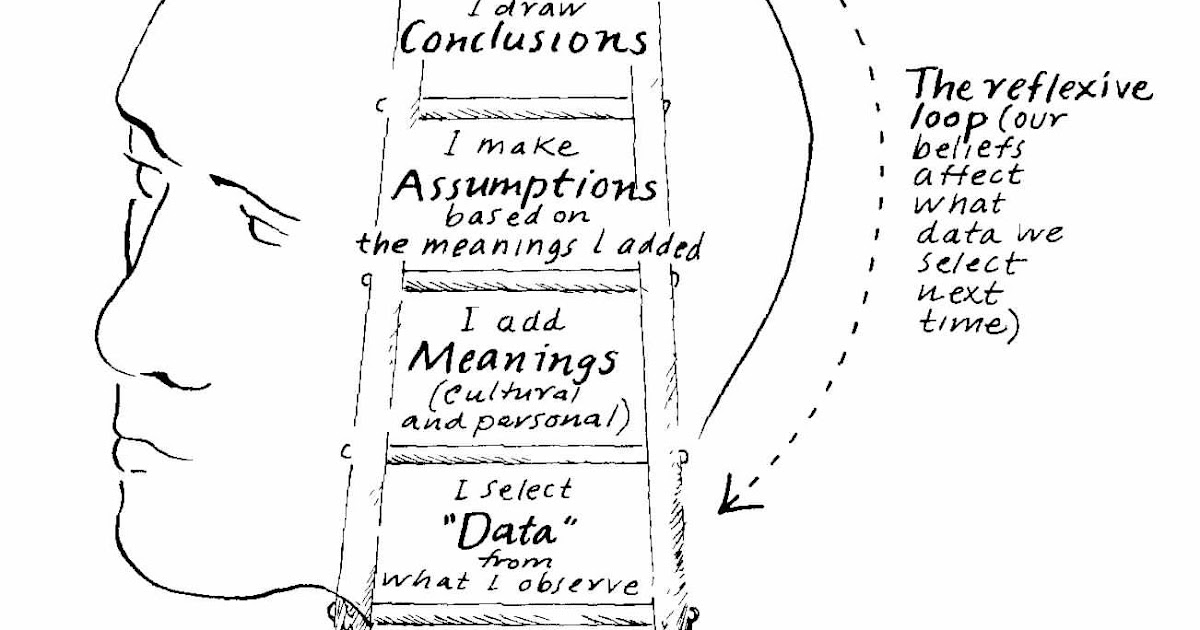 I draw
Conclusions
I make
Assumptions
based on
the meanings I added
I add
Meanings
(cultural
and personal)
I select
"Data"
from
what I observe
The reflexive
loop (our
beliefs
affect
what
data we
select
next
time)